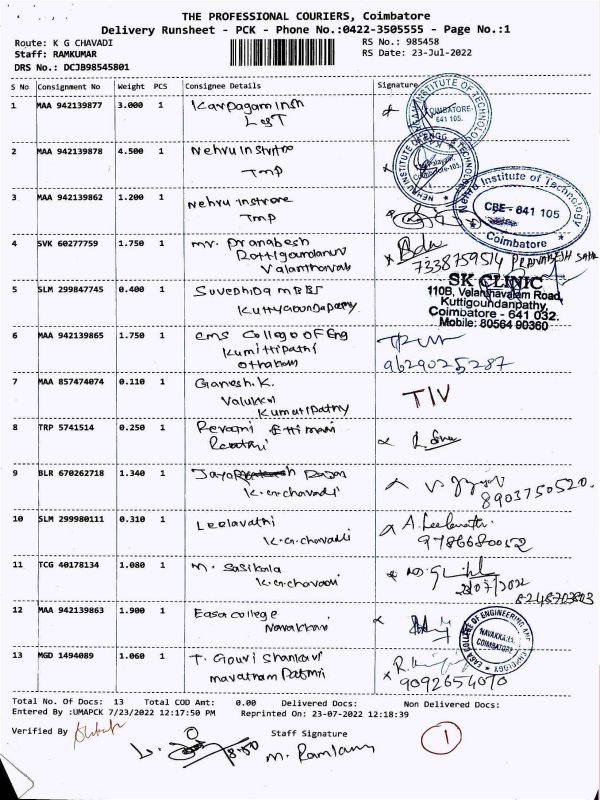 THE PROFESSIONAL COURIERS, Coimbatore
Delivery Runsheet - PCK - Phone No.:0422-3505555 - Page No.:1
Route: K G CHAVADI RS No.: 985458
Staff: RAMKUMAR RS Date: 23-Jul-2022
DRS No.: DCJB98545801
S No Consignment No Weight PCS Consignee Details Signature
1 MAA 942139877 3.000 1 Karpagam Insti
COIMBATORE-
641 105.
2 MAA 942139878 4.500 1 Nehru
TMP
NEHRU INSTITUTE OF ENGG & TECHNOLOGY
Coimbatore-105.
3 MAA 942139862 1.200 1 Nehru
TMP
Nehru Institute of Technology
CBE - 641 105
Coimbatore
4 SVK 60277759 1.750 1 Mr. Pranabesh
Valanthavalam
7338759514 PRANABESH SAHA
5 SLM 299847745 0.400 1 Suvedhida MBBS
Kuttygoundapathy
SK CLINIC
110B, Velanthavalam Road,
Kuttigoundanpathy
Coimbatore - 641 032.
Mobile: 80564 90360
6 MAA 942139865 1.750 1 CMS College OF Eng
Kumittipathi
9629025287
7 MAA 857474074 0.110 1 Ganesh.K.
Kumutipathy
TIV
8 TRP 5741514 0.250 1 Revathi Ettimari
9 BLR 670262718 1.340 1 Rajan
K.G.chavadi
8903750520.
10 SLM 299980111 0.310 1 Leelavathi
K.G.chavadi
A. Leelavathi.
9786680052
11 TCG 40178134 1.080 1 M. Sasikala
K.G.chavadi
23/07/2022
12 MAA 942139863 1.900 1 Easa college
Navakkari
EASA COLLEGE OF ENGINEERING AND TECHNOLOGY
NAVAKKARAI
COIMBATORE
13 MGD 1494089 1.060 1 T. Gowri Shankari
9092654070
Total No. Of Docs: 13 Total COD Amt: 0.00 Delivered Docs: Non Delivered Docs:
Entered By :UMAPCK 7/23/2022 12:17:50 PM Reprinted On: 23-07-2022 12:18:39
Verified By Staff Signature
8.50 M. Ramkumar
1